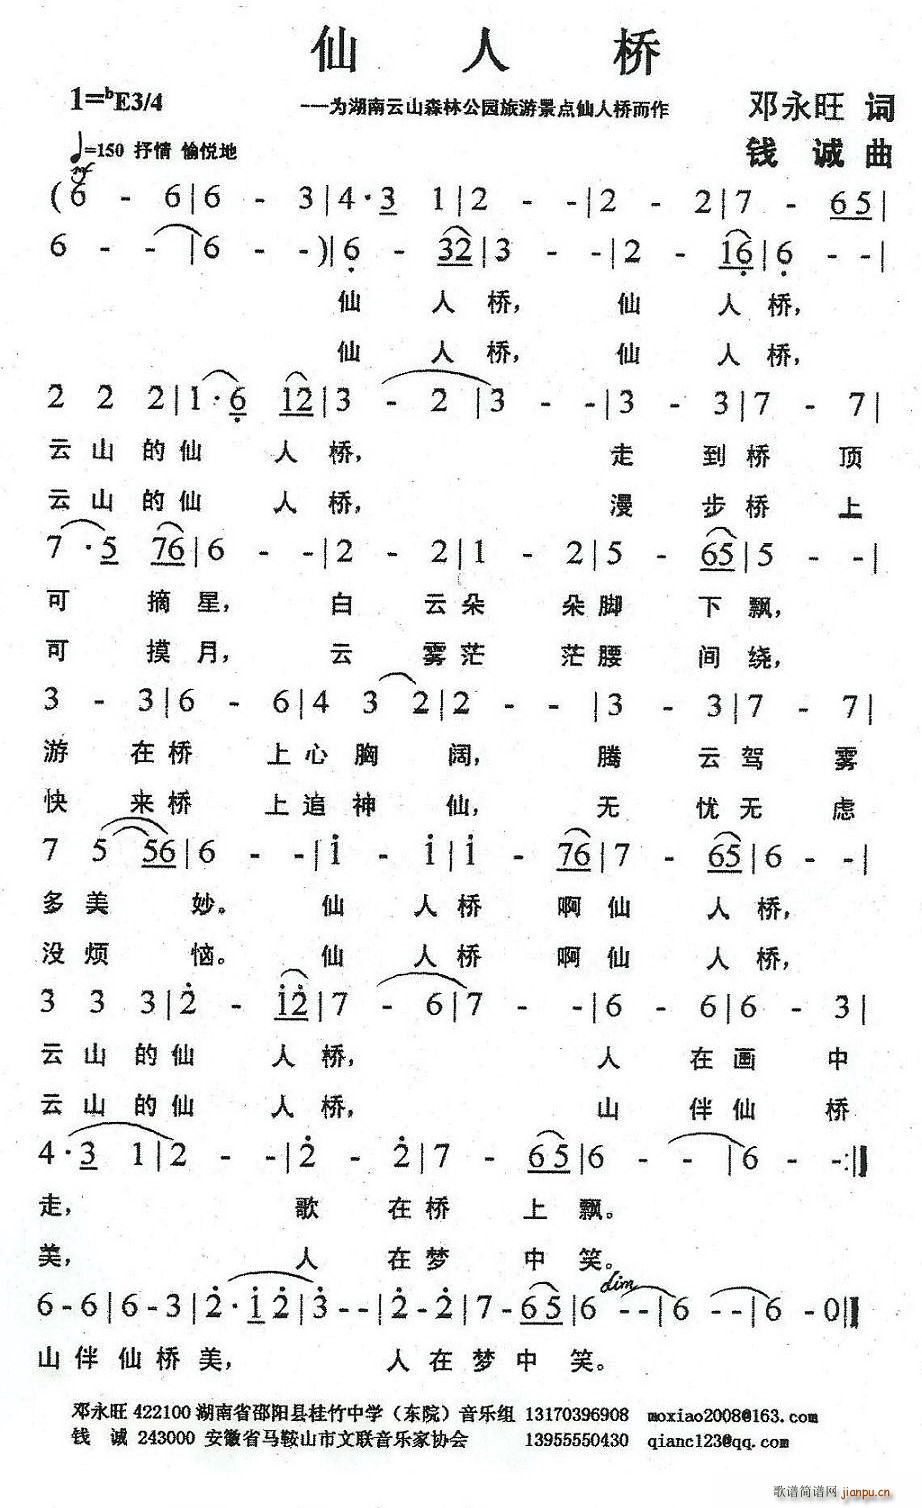 仙人桥
1=ᵇE3/4 ——为湖南云山森林公园旅游景点仙人桥而作 邓永旺 词
♩=150 抒情 愉悦地 钱诚 曲
mf
(6 - 6|6 - 3|4·3 1|2 - -|2 - 2|7 - 65|
6 - -|6 - -)|6 - 32|3 - -|2 - 16|6 - -|
仙 人 桥, 仙 人 桥,
仙 人 桥, 仙 人 桥,
2 2 2|1·6 12|3 - 2|3 - -|3 - 3|7 - 7|
云 山 的 仙 人 桥, 走 到 桥 顶
云 山 的 仙 人 桥, 漫 步 桥 上
7·5 76|6 - -|2 - 2|1 - 2|5 - 65|5 - -|
可 摘 星, 白 云 朵 朵 脚 下 飘,
可 摸 月, 云 雾 茫 茫 腰 间 绕,
3 - 3|6 - 6|4 3 2|2 - -|3 - 3|7 - 7|
游 在 桥 上 心 胸 阔, 腾 云 驾 雾
快 来 桥 上 追 神 仙, 无 忧 无 虑
7 5 56|6 - -|i - i|i - 76|7 - 65|6 - -|
多 美 妙。 仙 人 桥 啊 仙 人 桥,
没 烦 恼。 仙 人 桥 啊 仙 人 桥,
3 3 3|2̇ - i2̇|7 - 6|7 - -|6 - 6|6 - 3|
云 山 的 仙 人 桥, 人 在 画 中
云 山 的 仙 人 桥, 山 伴 仙 桥
4·3 1|2 - -|2̇ - 2̇|7 - 65|6 - -|6 - -:‖
走, 歌 在 桥 上 飘。
美, 人 在 梦 中 笑。
dim
6 - 6|6 - 3|2̇·i 2̇|3̇ - -|2̇ - 2̇|7 - 65|6 - -|6 - -|6 - 0‖
山 伴 仙 桥 美, 人 在 梦 中 笑。
邓永旺 422100 湖南省邵阳县桂竹中学（东院）音乐组 13170396908 moxiao2008@163.com
钱 诚 243000 安徽省马鞍山市文联音乐家协会 13955550430 qianc123@qq.com
歌谱简谱网 jianpu.cn